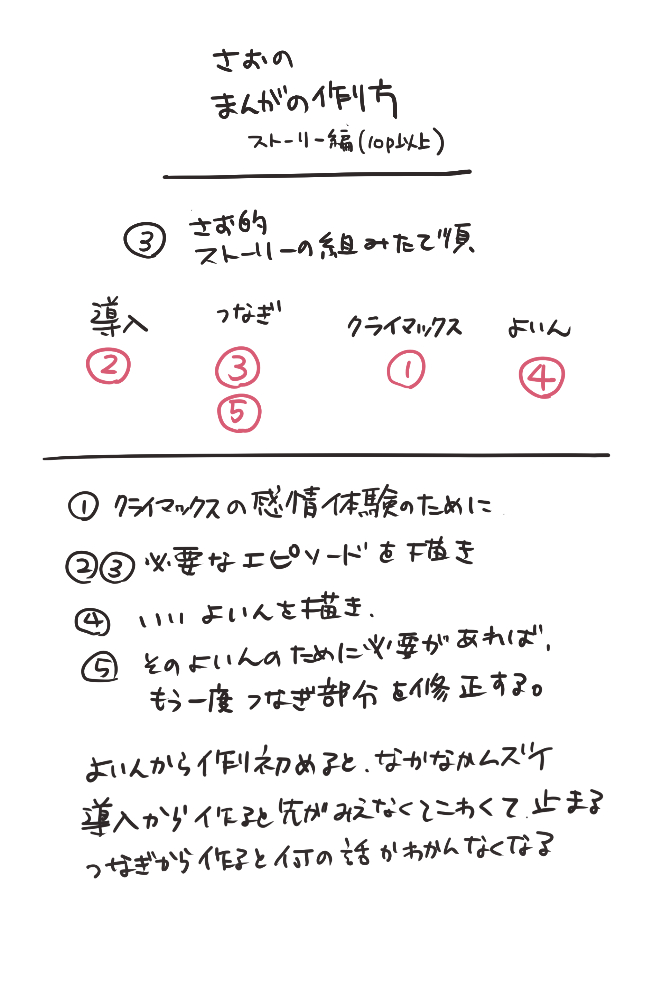 さおの
まんがの作り方
ストーリー編(10p以上)
③ さお的
ストーリーの組みたて順
導入 つなぎ クライマックス よいん
② ③ ① ④
⑤
① クライマックスの感情体験のために
②③ 必要なエピソードを描き
④ いい よいんを描き、
⑤ そのよいんのために必要があれば、
もう一度つなぎ部分を修正する。
よいんから作り初めると、なかなかムズイ
導入から作ると先がみえなくてこわくて、止まる
つなぎから作ると何の話かわかんなくなる